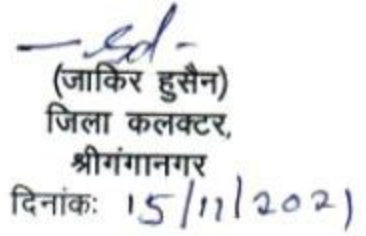 -sd-
(जाकिर हुसैन)
जिला कलक्टर,
श्रीगंगानगर
दिनांकः 15/11/2021